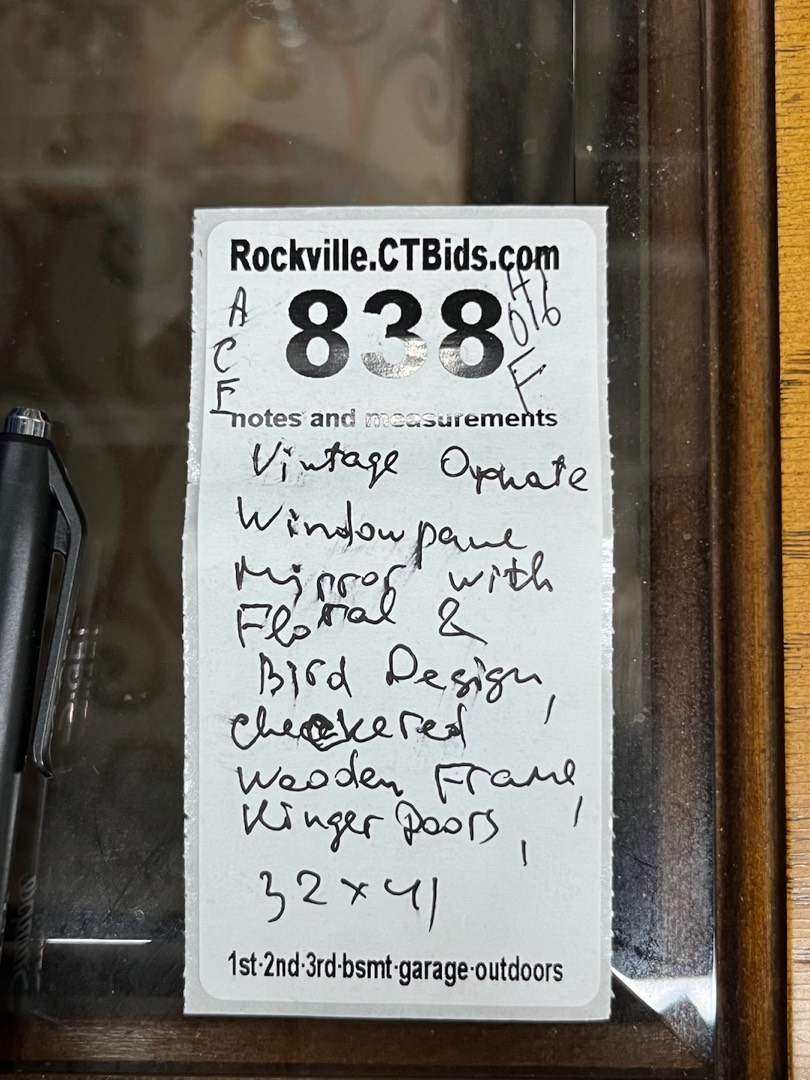 Rockville.CTBids.com
A
C
F
838
H1
016
F
notes and measurements
Vintage Ornate
Windowpane
Mirror with
Floral &
Bird Design,
checkered
Wooden Frame,
Kinger Doors,
32 x 41
1st·2nd·3rd·bsmt·garage·outdoors